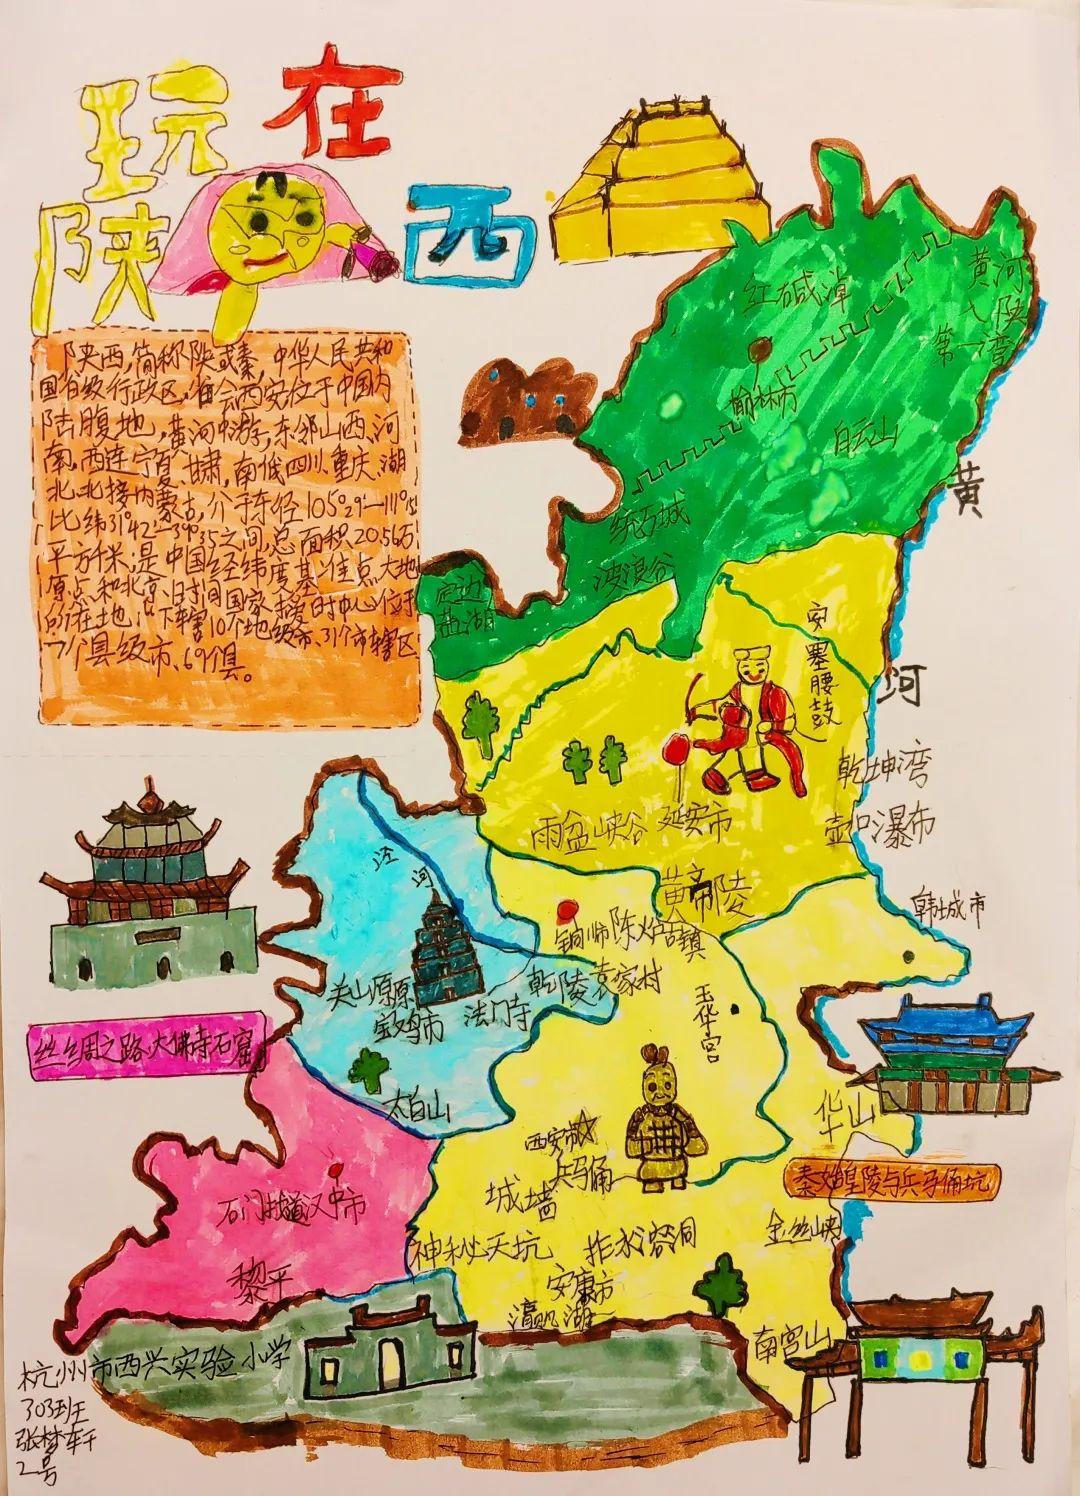 玩在
陕西
陕西,简称陕或秦,中华人民共和
国省级行政区,省会西安位于中国内
陆腹地,黄河中游,东邻山西、河
南,西连宁夏、甘肃,南低四川、重庆、湖
北,北接内蒙古,介于东经105°29′—111°15′
北纬31°42′—39°35′之间,总面积20.56万
平方千米,是中国经纬度基准点大地
原点和北京时间国家授时中心位于
所在地,下辖10个地级市、31个市辖区
7个县级市、69个县。
红碱淖
黄河
入陕
第一湾
榆林市
白云山
统万城
波浪谷
定边
盐湖
黄
河
安塞腰鼓
乾坤湾
壶口瀑布
雨岔峡谷
延安市
黄帝陵
韩城市
泾河
陈炉古镇
关山
宝鸡市
法门寺
乾陵
袁家村
玉华宫
太白山
丝绸之路、大佛寺石窟
华山
西安市
兵马俑
秦始皇陵与兵马俑坑
石门栈道
汉中市
城墙
金丝峡
神秘天坑
柞水溶洞
黎平
安康市
瀛湖
南宫山
杭州市西兴实验小学
303班
张梦轩
2号